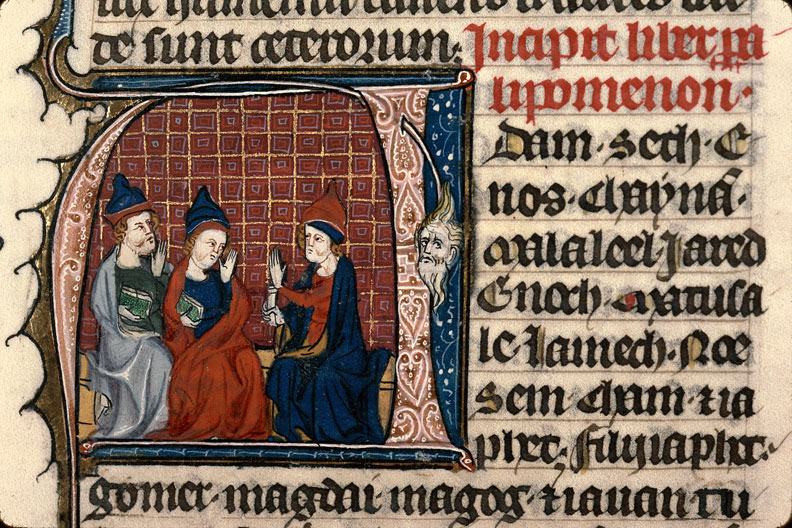 te sunt ceterorum. Incipit liber pa
lipomenon.
dam. Seth. E
nos. Chaynā.
Malaleel. Jared
Enoch. Matusa
le. Lamech. Noe
Sem. Cham. ⁊ ia
phet. filij iaphet.
gomer. magdai. magog. ⁊ iauan tu